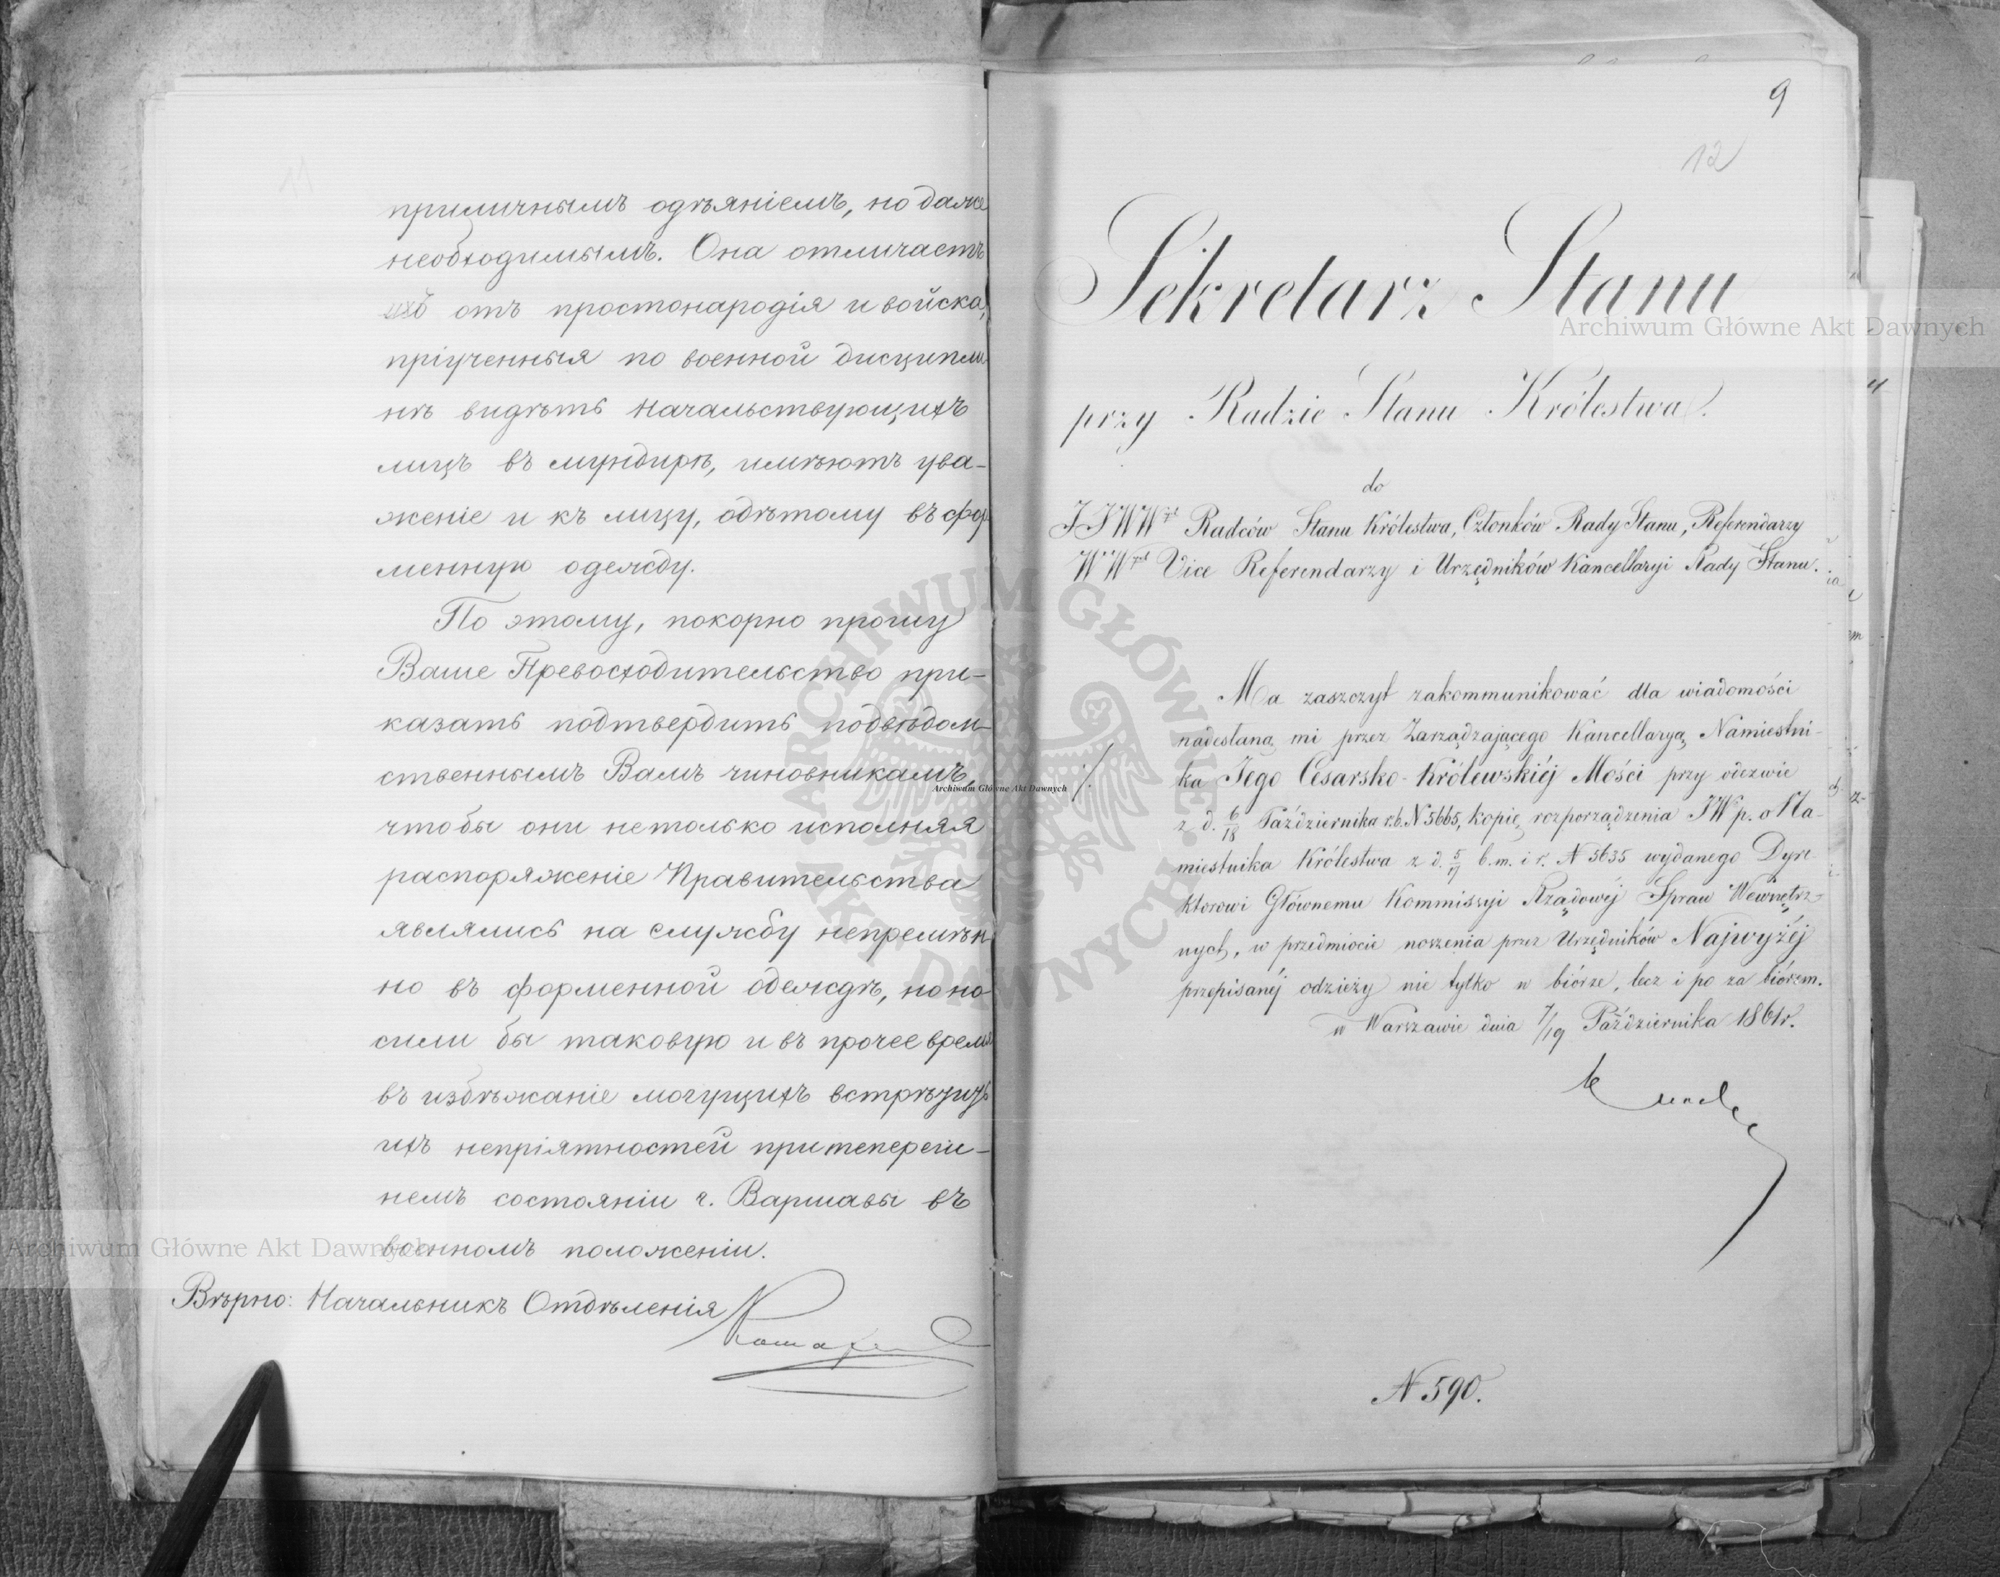 приличнымъ одѣяніемъ, но даже
необходимымъ. Она отличаетъ
ихъ отъ простонародія и войска,
пріученныя по военной дисципли
нѣ видѣть начальствующихъ
лицъ въ мундирѣ, имѣютъ ува-
женіе и къ лицу, одѣтому въ фор
менную одежду.
По этому, покорно прошу
Ваше Превосходительство при-
казать подтвердить подвѣдом-
ственнымъ Вамъ чиновникамъ,
чтобы они не только исполняя
распоряженіе Правительства
являлись на службу непремѣн
но въ форменной одеждѣ, но но
сили бы таковую и въ прочее время
въ избѣжаніе могущихъ встрѣтить
ихъ непріятностей при тепереш-
немъ состояніи г. Варшавы въ
военномъ положеніи.
Вѣрно: Начальникъ Отдѣленія
9
12
Sekretarz Stanu
przy Radzie Stanu Królestwa.
do
JJWW Radców Stanu Królestwa, Członków Rady Stanu, Referendarzy
WW Vice Referendarzy i Urzędników Kancellaryi Rady Stanu.
Ma zaszczyt zakommunikować dla wiadomości
nadesłaną mi przez Zarządzającego Kancellaryą Namiestni-
ka Jego Cesarsko-Królewskiéj Mości przy odezwie
z d. 6/18 Października r.b. N 5665, kopię rozporządzenia JW p. o Na-
miestnika Królestwa z d. 5/17 b.m. i r. N 5635 wydanego Dyre
ktorowi Głównemu Kommissyi Rządowéj Spraw Wewnętrz-
nych, w przedmiocie noszenia przez Urzędników Najwyżéj
przepisanéj odzieży nie tylko w biórze, lecz i po za biórem.
w Warszawie dnia 7/19 Października 1861 r.
N 590.
Archiwum Główne Akt Dawnych
Archiwum Główne Akt Dawnych
Archiwum Główne Akt Dawnych
ARCHIWUM GŁÓWNE AKT DAWNYCH